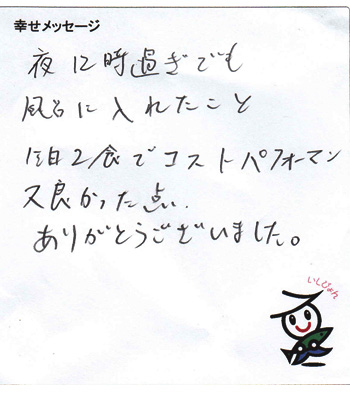 幸せメッセージ
夜12時過ぎでも
風呂に入れたこと
1泊2食でコストパフォーマン
ス良かった点、
ありがとうございました。
いしぴょん